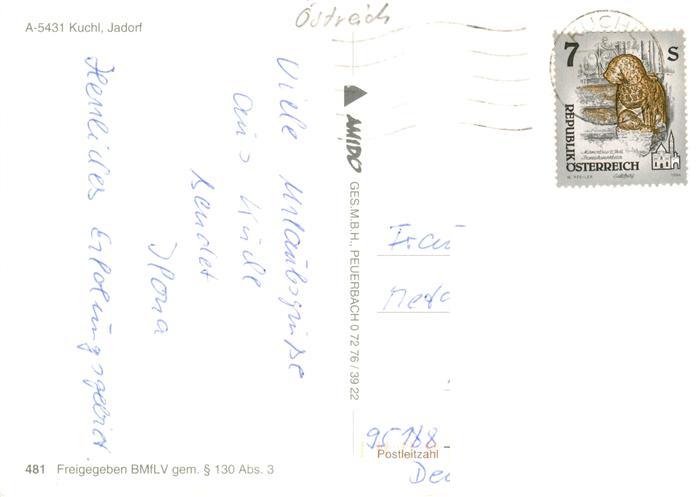 A-5431 Kuchl, Jadorf
Östreich
Viele Urlaubsgrüße
aus Kuchl
sendet
Ilona
Herrliches Erholungsgebiet.
AMIDO GES.M.B.H., PEUERBACH 0 72 76 / 39 22
7 S
REPUBLIK
ÖSTERREICH
1994
KUCHL
Frau
95188
Postleitzahl
481 Freigegeben BMfLV gem. § 130 Abs. 3